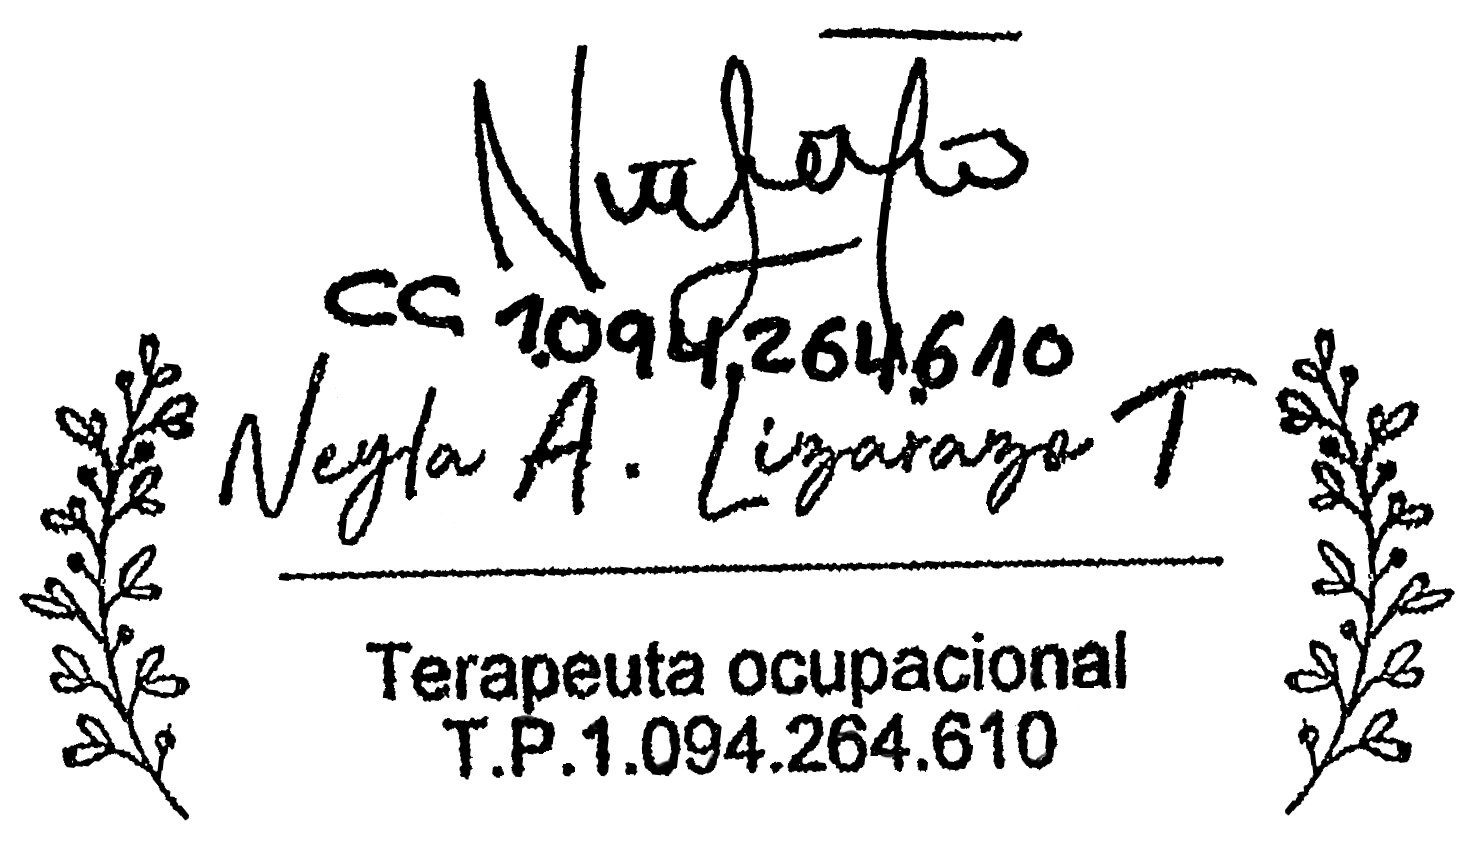 CC 1.094.264.610
Neyla A. Lizarazo T
Terapeuta ocupacional
T.P.1.094.264.610